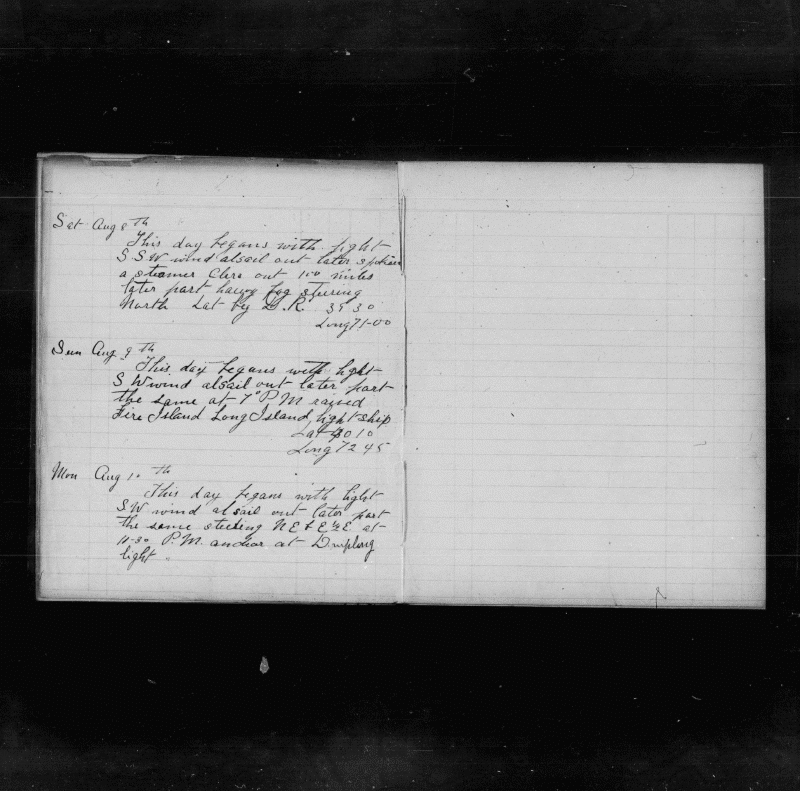 Sat Aug 8th
This day begans with light
S S W wind alsail out later
a steamer Clere out 100 miles
later part haevy fog steering
North Lat by D.R. 39 30
Long 71-00
Sun Aug 9th
This day begans with light
S W wind alsail out later part
the same at 7 P M raised
Fire Island Long Island, light ship
Lat 40 10
Long 72 45
Mon Aug 10th
This day begans with light
S.W wind alsail out later part
the same steeing N E & E
11-30 P.M. anchor at Dumpling
light